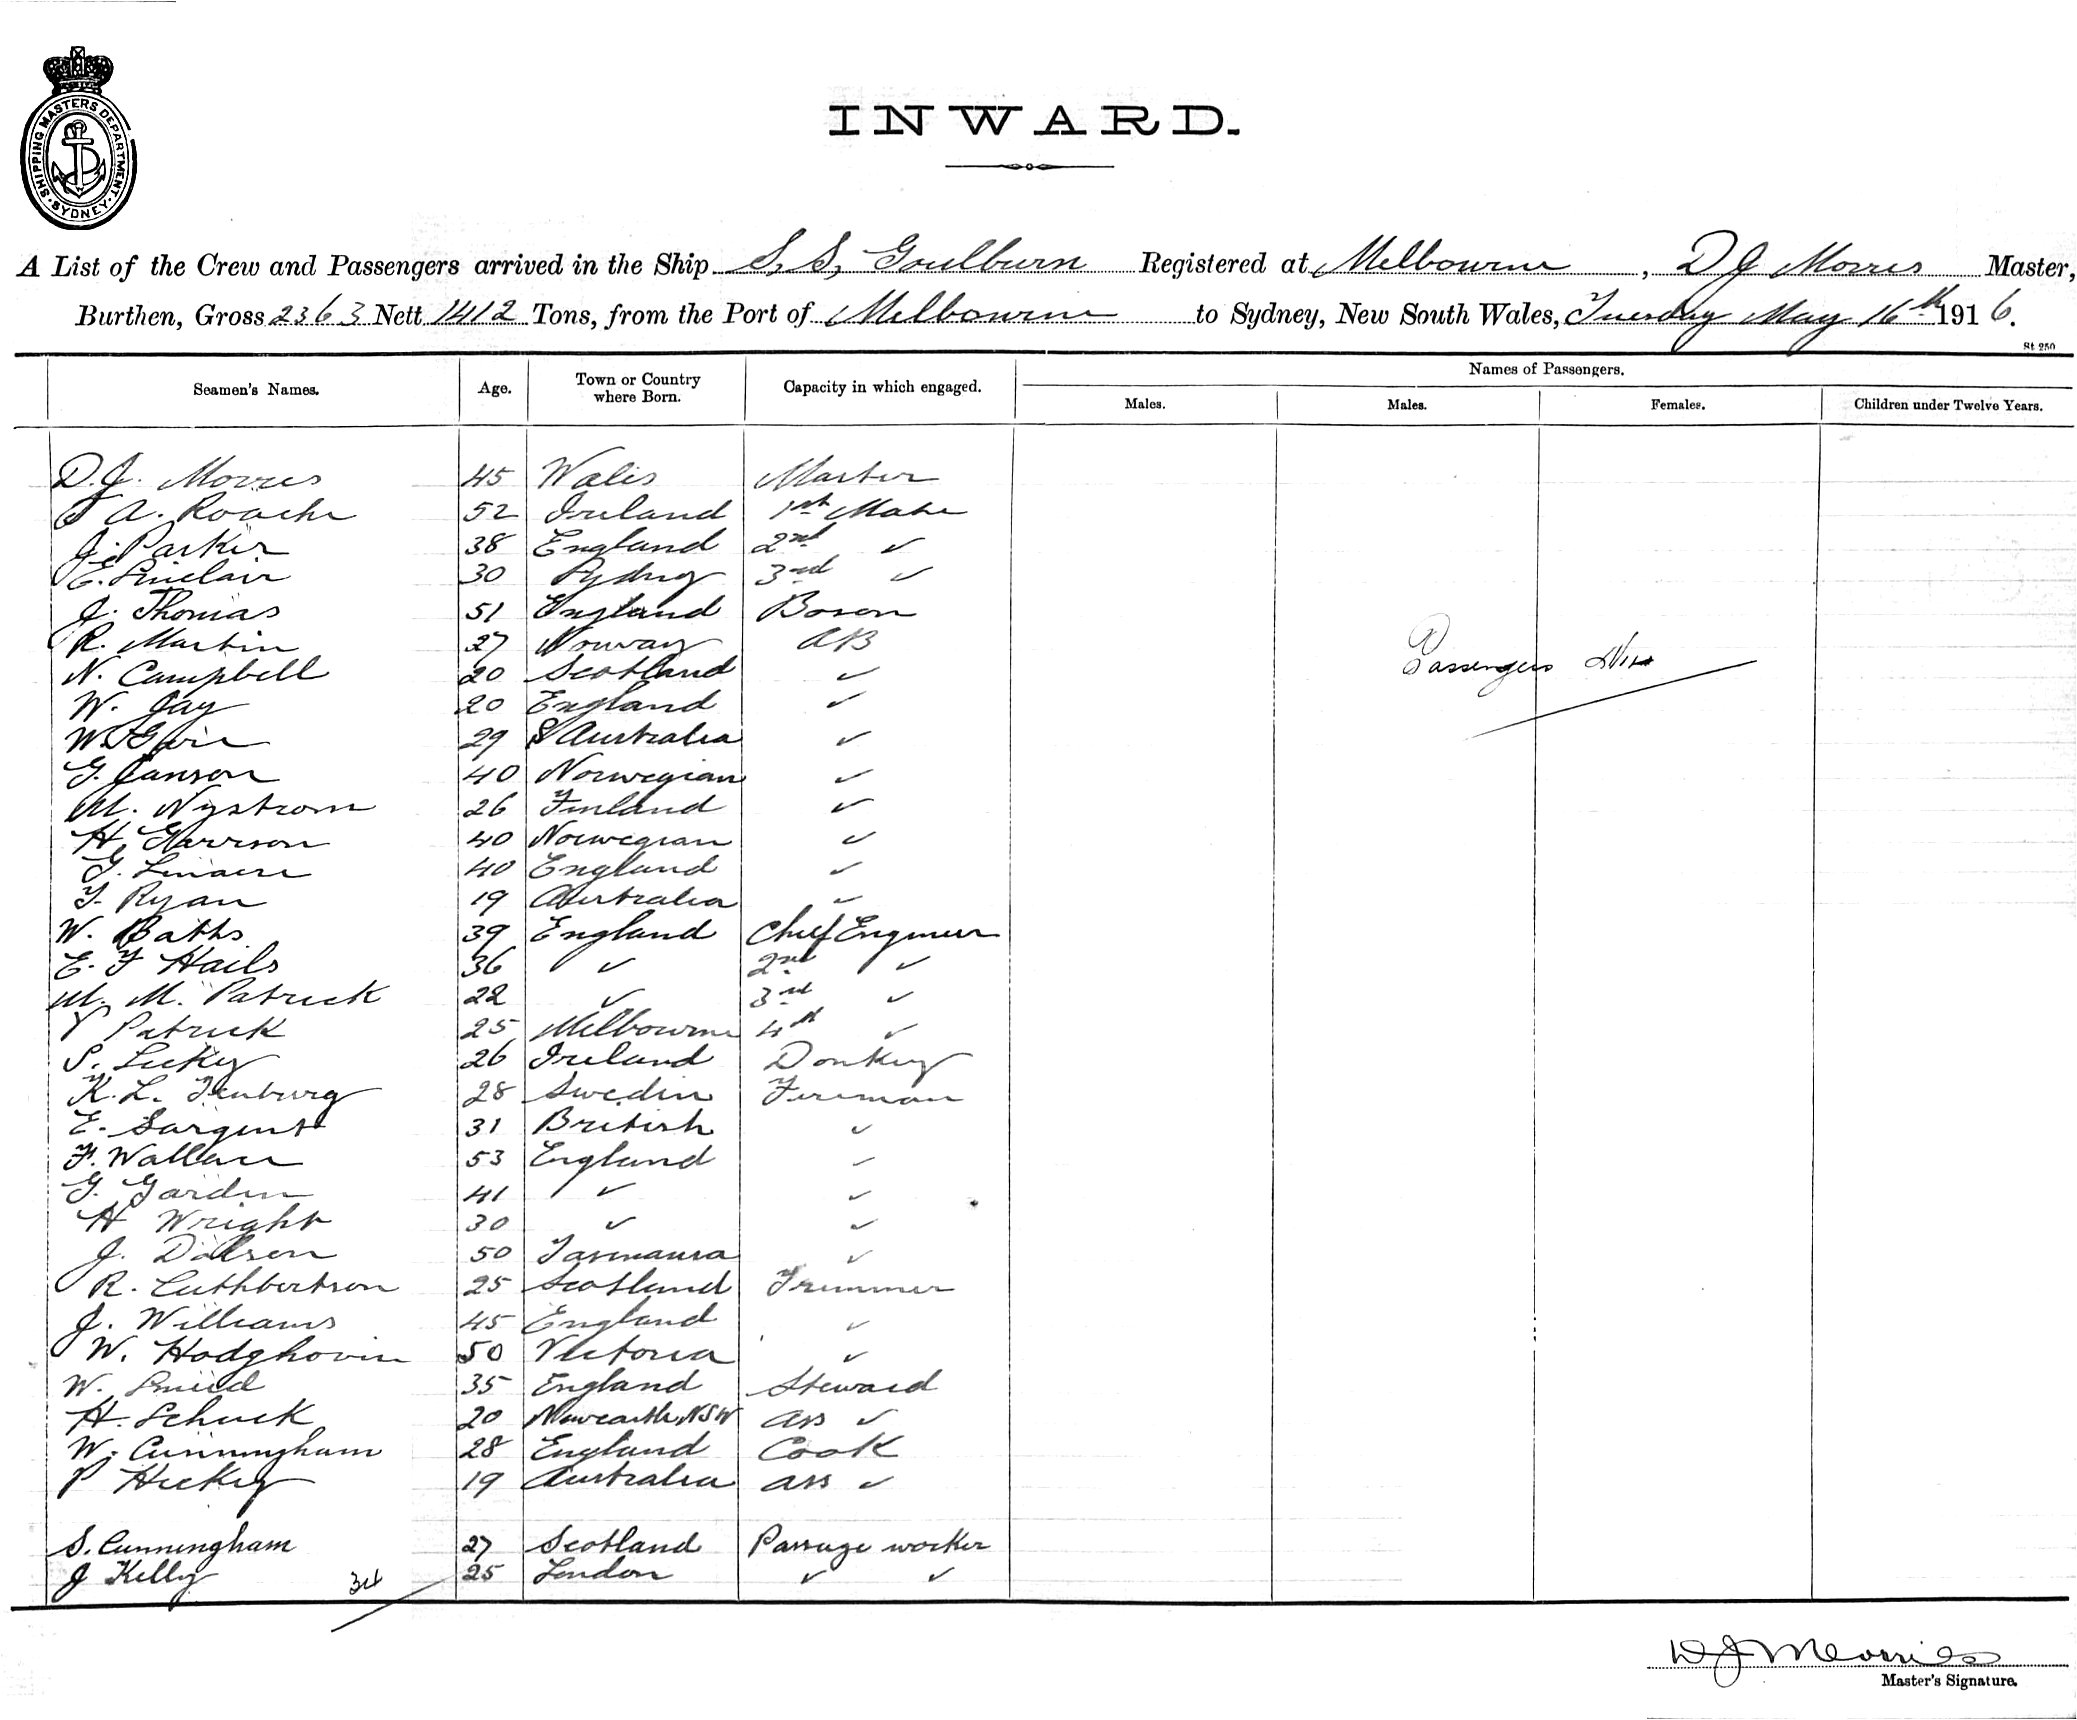 SHIPPING MASTERS DEPARTMENT. SYDNEY.
INWARD.
A List of the Crew and Passengers arrived in the Ship S.S. Goulburn Registered at Melbourne, D J Morris Master,
Burthen, Gross 2363 Nett 1412 Tons, from the Port of Melbourne to Sydney, New South Wales, Tuesday May 16th 1916.
St 250
Seamen's Names. Age. Town or Country where Born. Capacity in which engaged. Names of Passengers.
Males. Males. Females. Children under Twelve Years.
D.J. Morris 45 Wales Master
A. Roache 52 Ireland 1st Mate
J. Parker 38 England 2nd ✓
E. Sinclair 30 Sydney 3rd ✓
J. Thomas 51 England Boson
R. Martin 27 Norway AB
N. Campbell 20 Scotland ✓
Passengers Nil
W. Jay 20 England ✓
W. 29 S Australia ✓
G. Janson 40 Norwegian ✓
M. Nystrom 26 Finland ✓
H. Harrson 40 Norwegian ✓
G. 40 England ✓
T. Ryan 19 Australia ✓
W. Baths 39 England Chief Engineer
E. F Hails 36 ✓ 2nd ✓
M. M. Patrick 22 ✓ 3rd ✓
Patrick 25 Melbourne 4th ✓
S. Leckey 26 Ireland Donkey
K. L. 28 Sweden Fireman
E. Sargent 31 British ✓
F. Wallace 53 England ✓
G. Garden 41 ✓ ✓
H Wright 30 ✓ ✓
J. 50 Tasmania ✓
R. Cuthbertson 25 Scotland Trimmer
J. Williams 45 England ✓
W. 50 Victoria ✓
W. 35 England Steward
H. Schuck 20 Newcastle NSW ass ✓
W. Cunningham 28 England Cook
P Hickey 19 Australia ass ✓
S. Cunningham 27 Scotland Passage worker
J Kelly 34 25 London ✓ ✓
D J Morris
Master's Signature.